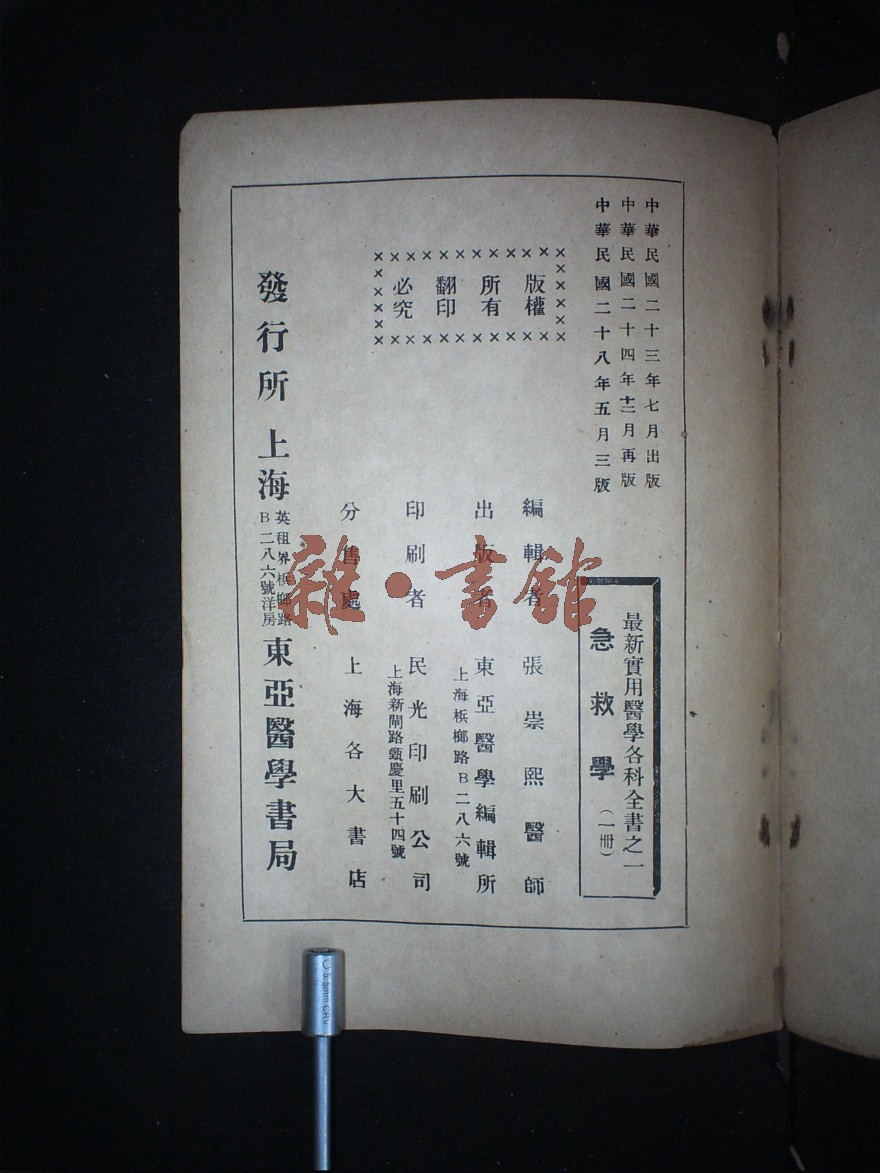 中華民國二十三年七月出版
中華民國二十四年十二月再版
中華民國二十八年五月三版
最新實用醫學各科全書之一
急救學(一冊)
版權
所有
翻印
必究
編輯者 張崇熙醫師
出版者 東亞醫學編輯所
上海梹榔路B二八六號
印刷者 民光印刷公司
上海新閘路甄慶里五十四號
分售處 上海各大書店
發行所 上海
英租界梹榔路
B二八六號洋房
東亞醫學書局
雜·書館
5.5mm CRV